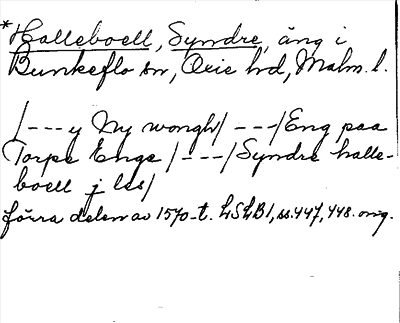 *Halleboell, Syndre, äng i
Bunkeflo sn, Oxie hd, Malm. l.
/---y Ny wongh/---/Eng paa
Torpe Enge /---/Syndre halle-
boell j lss/
förra delen av 1570-t. LSLB1, ss. 447, 448. orig.